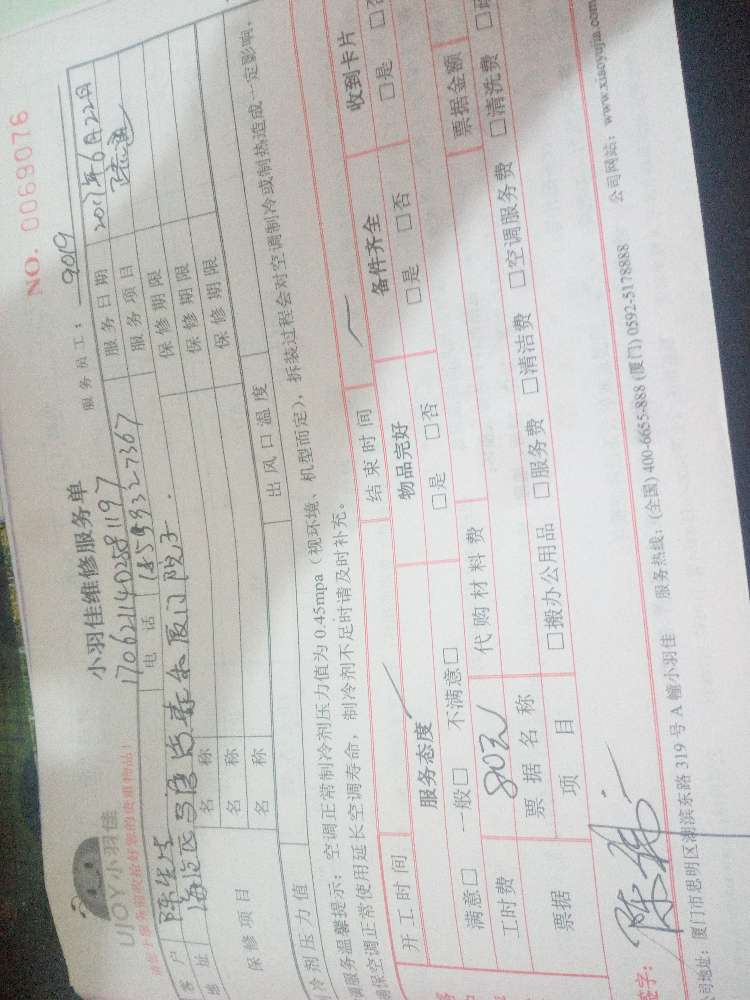 NO. 0069076
UJOY小羽佳
小羽佳维修服务单
服务员工： 9019
1706211402581197
客户 陈先生 电话 18593327367 服务日期 2017年6月22日
地址 服务项目
保修项目 名称 保修期限
名称 保修期限
名称 保修期限
冷剂压力值 出风口温度
调服务温馨提示：空调正常制冷剂压力值为 0.45mpa（视环境、机型而定），拆装过程会对空调制冷或制热造成一定影响，
确保空调正常使用延长空调寿命，制冷剂不足时请及时补充。
开工时间 结束时间
服务态度 物品完好 备件齐全 收到卡片
满意□ 一般□ 不满意□ □是 □否 □是 □否 □是
工时费 80元 代购材料费 票据金额
票据 票据名称
项目 □搬办公用品 □服务费 □清洁费 □空调服务费 □清洗费
签字：
司地址：厦门市思明区湖滨东路 319 号 A 幢小羽佳 服务热线：(全国) 400-6655-888 (厦门) 0592-5178888 公司网站：www.xiaoyujia.com